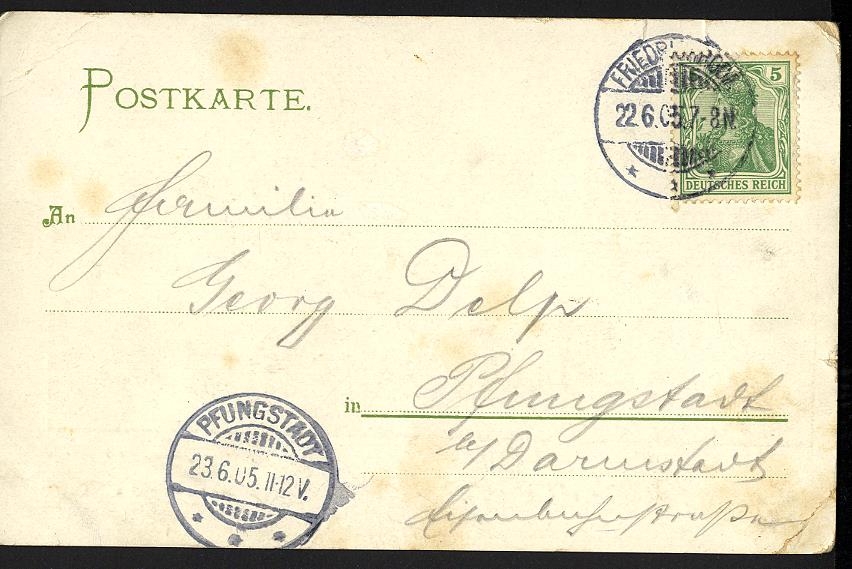 POSTKARTE.
5
22.6.05.7-8N.
DEUTSCHES REICH
An Familie
Georg Delp
in Pfungstadt
b/ Darmstadt
Eisenbahnstraße
PFUNGSTADT
23.6.05.11-12V.